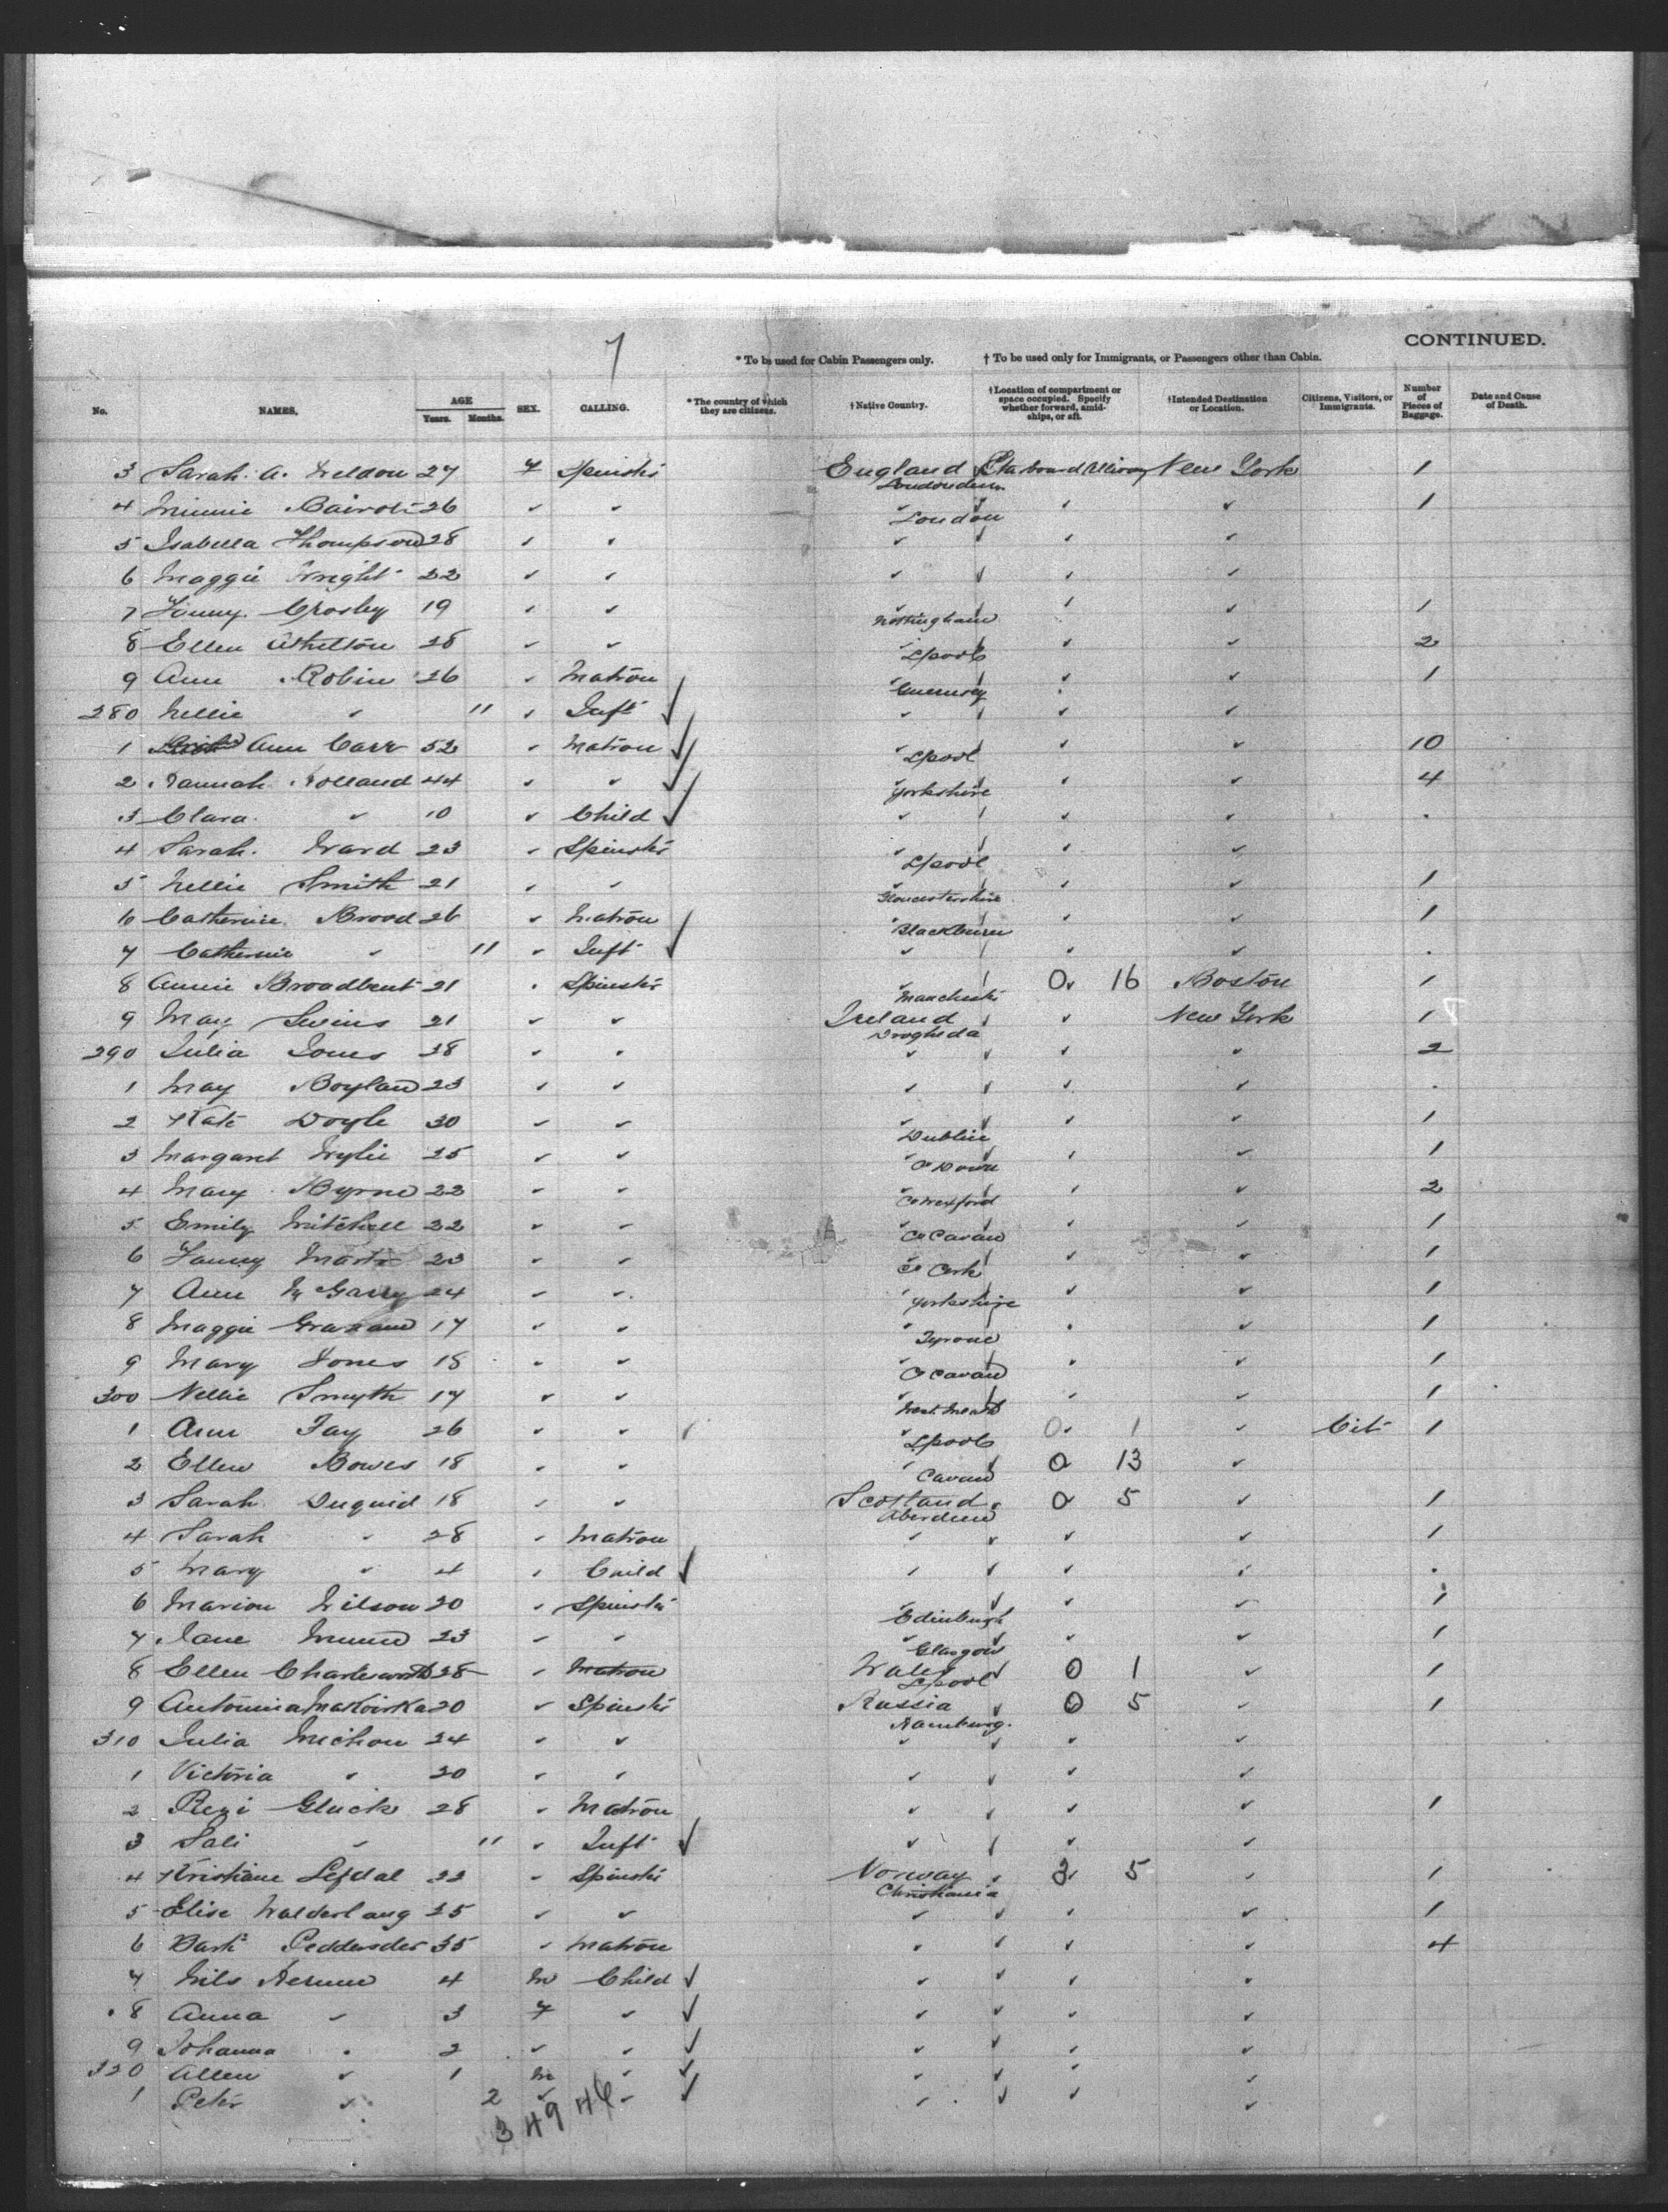 7
CONTINUED.
* To be used for Cabin Passengers only. † To be used only for Immigrants, or Passengers other than Cabin.
No. NAMES. AGE Years. Months. SEX. CALLING. * The country of which they are citizens. † Native Country. † Location of compartment or space occupied. Specify whether forward, amidships, or aft. † Intended Destination or Location. Citizens, Visitors, or Immigrants. Number of Pieces of Baggage. Date and Cause of Death.
3 Sarah. A. Weldon 27 f Spinstr England Starboard New York 1
4 Minnie 26 ✓ ✓ London ✓ ✓ 1
5 Isabella Thompson 28 ✓ ✓ ✓ ✓ ✓ ✓
6 Maggie Wright 22 ✓ ✓ ✓ ✓ ✓ ✓
7 Fanny Crosby 19 ✓ ✓ Nottingham ✓ ✓ 1
8 Ellen 28 ✓ ✓ Lpool ✓ ✓ 2
9 Ann Robin 26 ✓ Matron Guernsey ✓ ✓ 1
280 Nellie ✓ 11 ✓ Inft ✓ ✓ ✓ ✓ ✓
1 Ann Carr 52 ✓ Matron ✓ Lpool ✓ ✓ 10
2 Hannah Holland 44 ✓ ✓ ✓ Yorkshire ✓ ✓ 4
3 Clara ✓ 10 ✓ Child ✓ ✓ ✓ ✓ ✓
4 Sarah Ward 23 ✓ Spinstr Lpool ✓ ✓
5 Nellie Smith 21 ✓ ✓ Gloucestershire ✓ ✓ 1
6 Catherine Brood 26 ✓ Matron Blackburn ✓ ✓ 1
7 Catherine ✓ 11 ✓ Inft ✓ ✓ ✓ ✓ ✓
8 Annie Broadbent 21 ✓ Spinstr Manchestr O. 16 Boston 1
9 May 21 ✓ ✓ Ireland Drogheda ✓ New York 1
290 Julia Jones 38 ✓ ✓ ✓ ✓ ✓ ✓ 2
1 May Boyland 23 ✓ ✓ ✓ ✓ ✓ ✓
2 Kate Doyle 30 ✓ ✓ Dublin ✓ ✓ 1
3 Margaret Wylie 25 ✓ ✓ Co Down ✓ ✓ 1
4 Mary Byrne 22 ✓ ✓ Co Wexford ✓ ✓ 2
5 Emily Mitchell 22 ✓ ✓ Co Cavan ✓ ✓ 1
6 Fanny 23 ✓ ✓ Co Cork ✓ ✓ 1
7 Ann McGarry 24 ✓ ✓ Yorkshire ✓ ✓ 1
8 Maggie Graham 17 ✓ ✓ Tyrone ✓ ✓ 1
9 Mary Jones 18 ✓ ✓ Co Cavan ✓ ✓ 1
300 Nellie Smyth 17 ✓ ✓ West Meath ✓ ✓ 1
1 Ann Fay 26 ✓ ✓ Lpool O. 1 ✓ Cit 1
2 Ellen Bowes 18 ✓ ✓ Cavan O 13 ✓
3 Sarah Duguid 18 ✓ ✓ Scotland Aberdeen O 5 ✓ 1
4 Sarah ✓ 28 ✓ Matron ✓ ✓ ✓ ✓ 1
5 Mary ✓ 4 ✓ Child ✓ ✓ ✓ ✓ ✓
6 Marion Wilson 20 ✓ Spinstr Edinburgh ✓ ✓ 1
7 Jane 23 ✓ ✓ Glasgow ✓ ✓ 1
8 Ellen Charlesworth 28 ✓ Matron Wales Lpool O 1 ✓ 1
9 Antonnia Makoiska 20 ✓ Spinstr Russia Hamburg. O 5 ✓ 1
310 Julia Michou 24 ✓ ✓ ✓ ✓ ✓ ✓
1 Victoria ✓ 20 ✓ ✓ ✓ ✓ ✓ ✓
2 Rezi Gluck 28 ✓ Matron ✓ ✓ ✓ ✓ 1
3 Sali ✓ 11 ✓ Inft ✓ ✓ ✓ ✓ ✓
4 Kristiane Lefdal 22 ✓ Spinstr Norway Christiania 3. 5 ✓ 1
5 Elise 25 ✓ ✓ ✓ ✓ ✓ ✓ 1
6 35 ✓ Matron ✓ ✓ ✓ ✓ 4
7 Nils 4 m Child ✓ ✓ ✓ ✓ ✓
8 Anna ✓ 3 f ✓ ✓ ✓ ✓ ✓ ✓
9 Johanna ✓ 2 ✓ ✓ ✓ ✓ ✓ ✓ ✓
320 Allen ✓ 1 m ✓ ✓ ✓ ✓ ✓ ✓
1 Peter ✓ 2 ✓ ✓ ✓ ✓ ✓ ✓ ✓
3 49 46